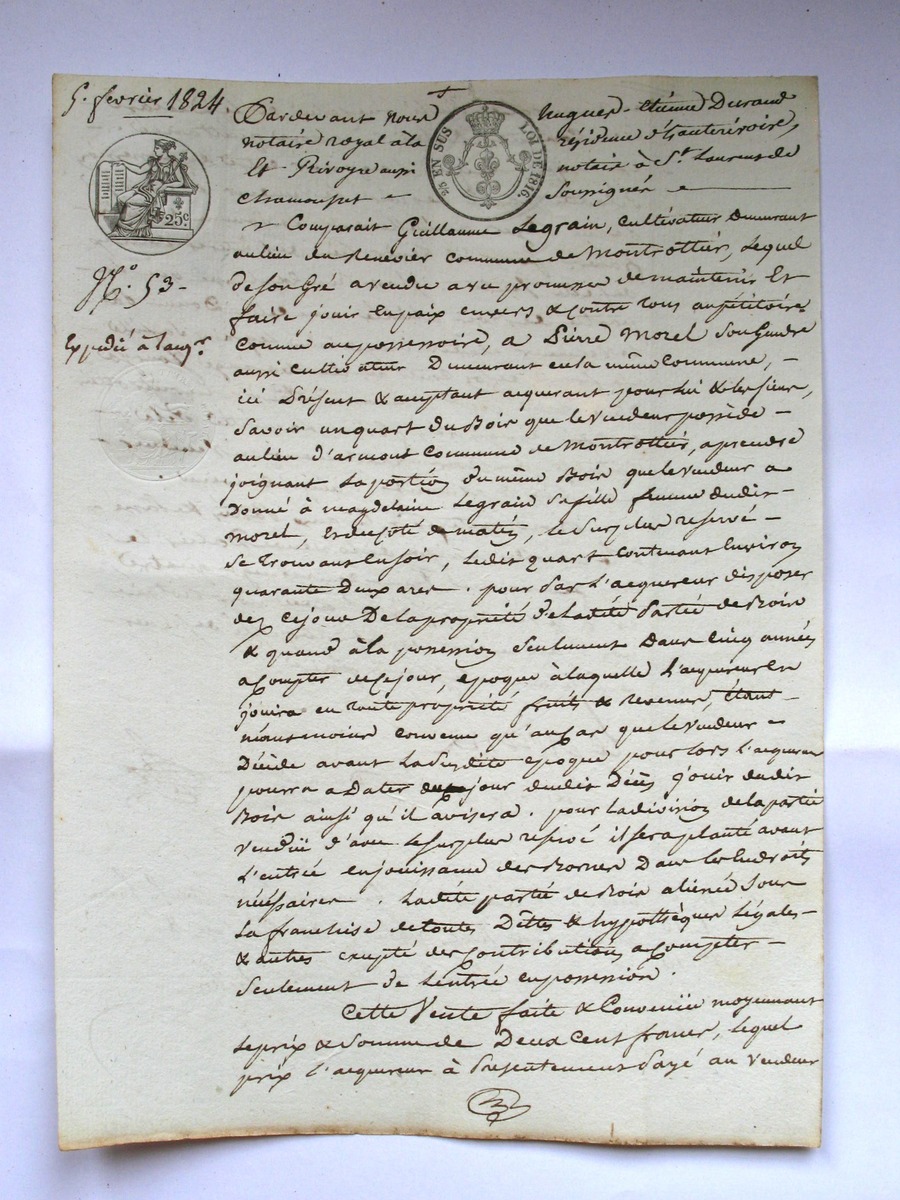 5. fevrier 1824.
25c.
N.º 53 -
Expédié à l'aqr.
⅖ EN SUS LOI DE 1816.
Pardevant Nous Hugues-Etienne Durand
notaire royal à la résidence d'hauterivoire,
Et Rivoyre aussi notaire à St. Laurent de
Chamousset = Soussignés =
= Comparait Guillaume Legrain, cultivateur demeurant
au lieu du Renevier commune de Montrottier, lequel
de son Gré a vendu avec promesse de maintenir Et
faire jouir en paix envers & contre tous au pétitoire
comme au possessoire, a Pierre Morel Son Gendre
aussi cultivateur Demeurant en la même Commune, -
ici Présent & acceptant acquerant pour lui & les siens,
Savoir un quart du Bois que le Vendeur possède -
au lieu d'armont Commune de Montrottier, a prendre
joignant La portion du même Bois que le Vendeur a
Donné à magdelaine Legrain Sa fille femme dudit -
morel, Endecôté de matin, le Surplus reservé -
Se trouvant en soir, Ledit quart Contenant Environ
quarante Deux ares. pour Par L'acquereur disposer
dez ce jour De la propriété de Ladite Partie de Bois
& quand à la possession Seulement Dans Cinq années
a Compter de ce jour, epoque à laquelle L'acquereur en
jouira en toute propriété fruits & Revenus, Etant -
néantmoins Convenu qu'au Cas que le Vendeur =
Décède avant La Susdite epoque pour lors L'acquereur
pourra a Dater du jour dudit Décès jouir dudit
Bois ainsi qu'il avisera. pour La division de la partie
Vendüe d'avec Le Surplus reservé il sera planté avant
L'entrée en jouissance des Bornes Dans les Endroits
nécessaires. Ladite partie de Bois alienée Sous
La franchise de toutes Dettes & hypothèques Légales -
& autres excepté des Contributions a Compter -
Seulement de L'entrée en possession.
Cette Vente faite & Convenüe moyennant
Le prix & Somme de Deux Cent francs, lequel
prix L'acquereur à Présentement Payé au Vendeur